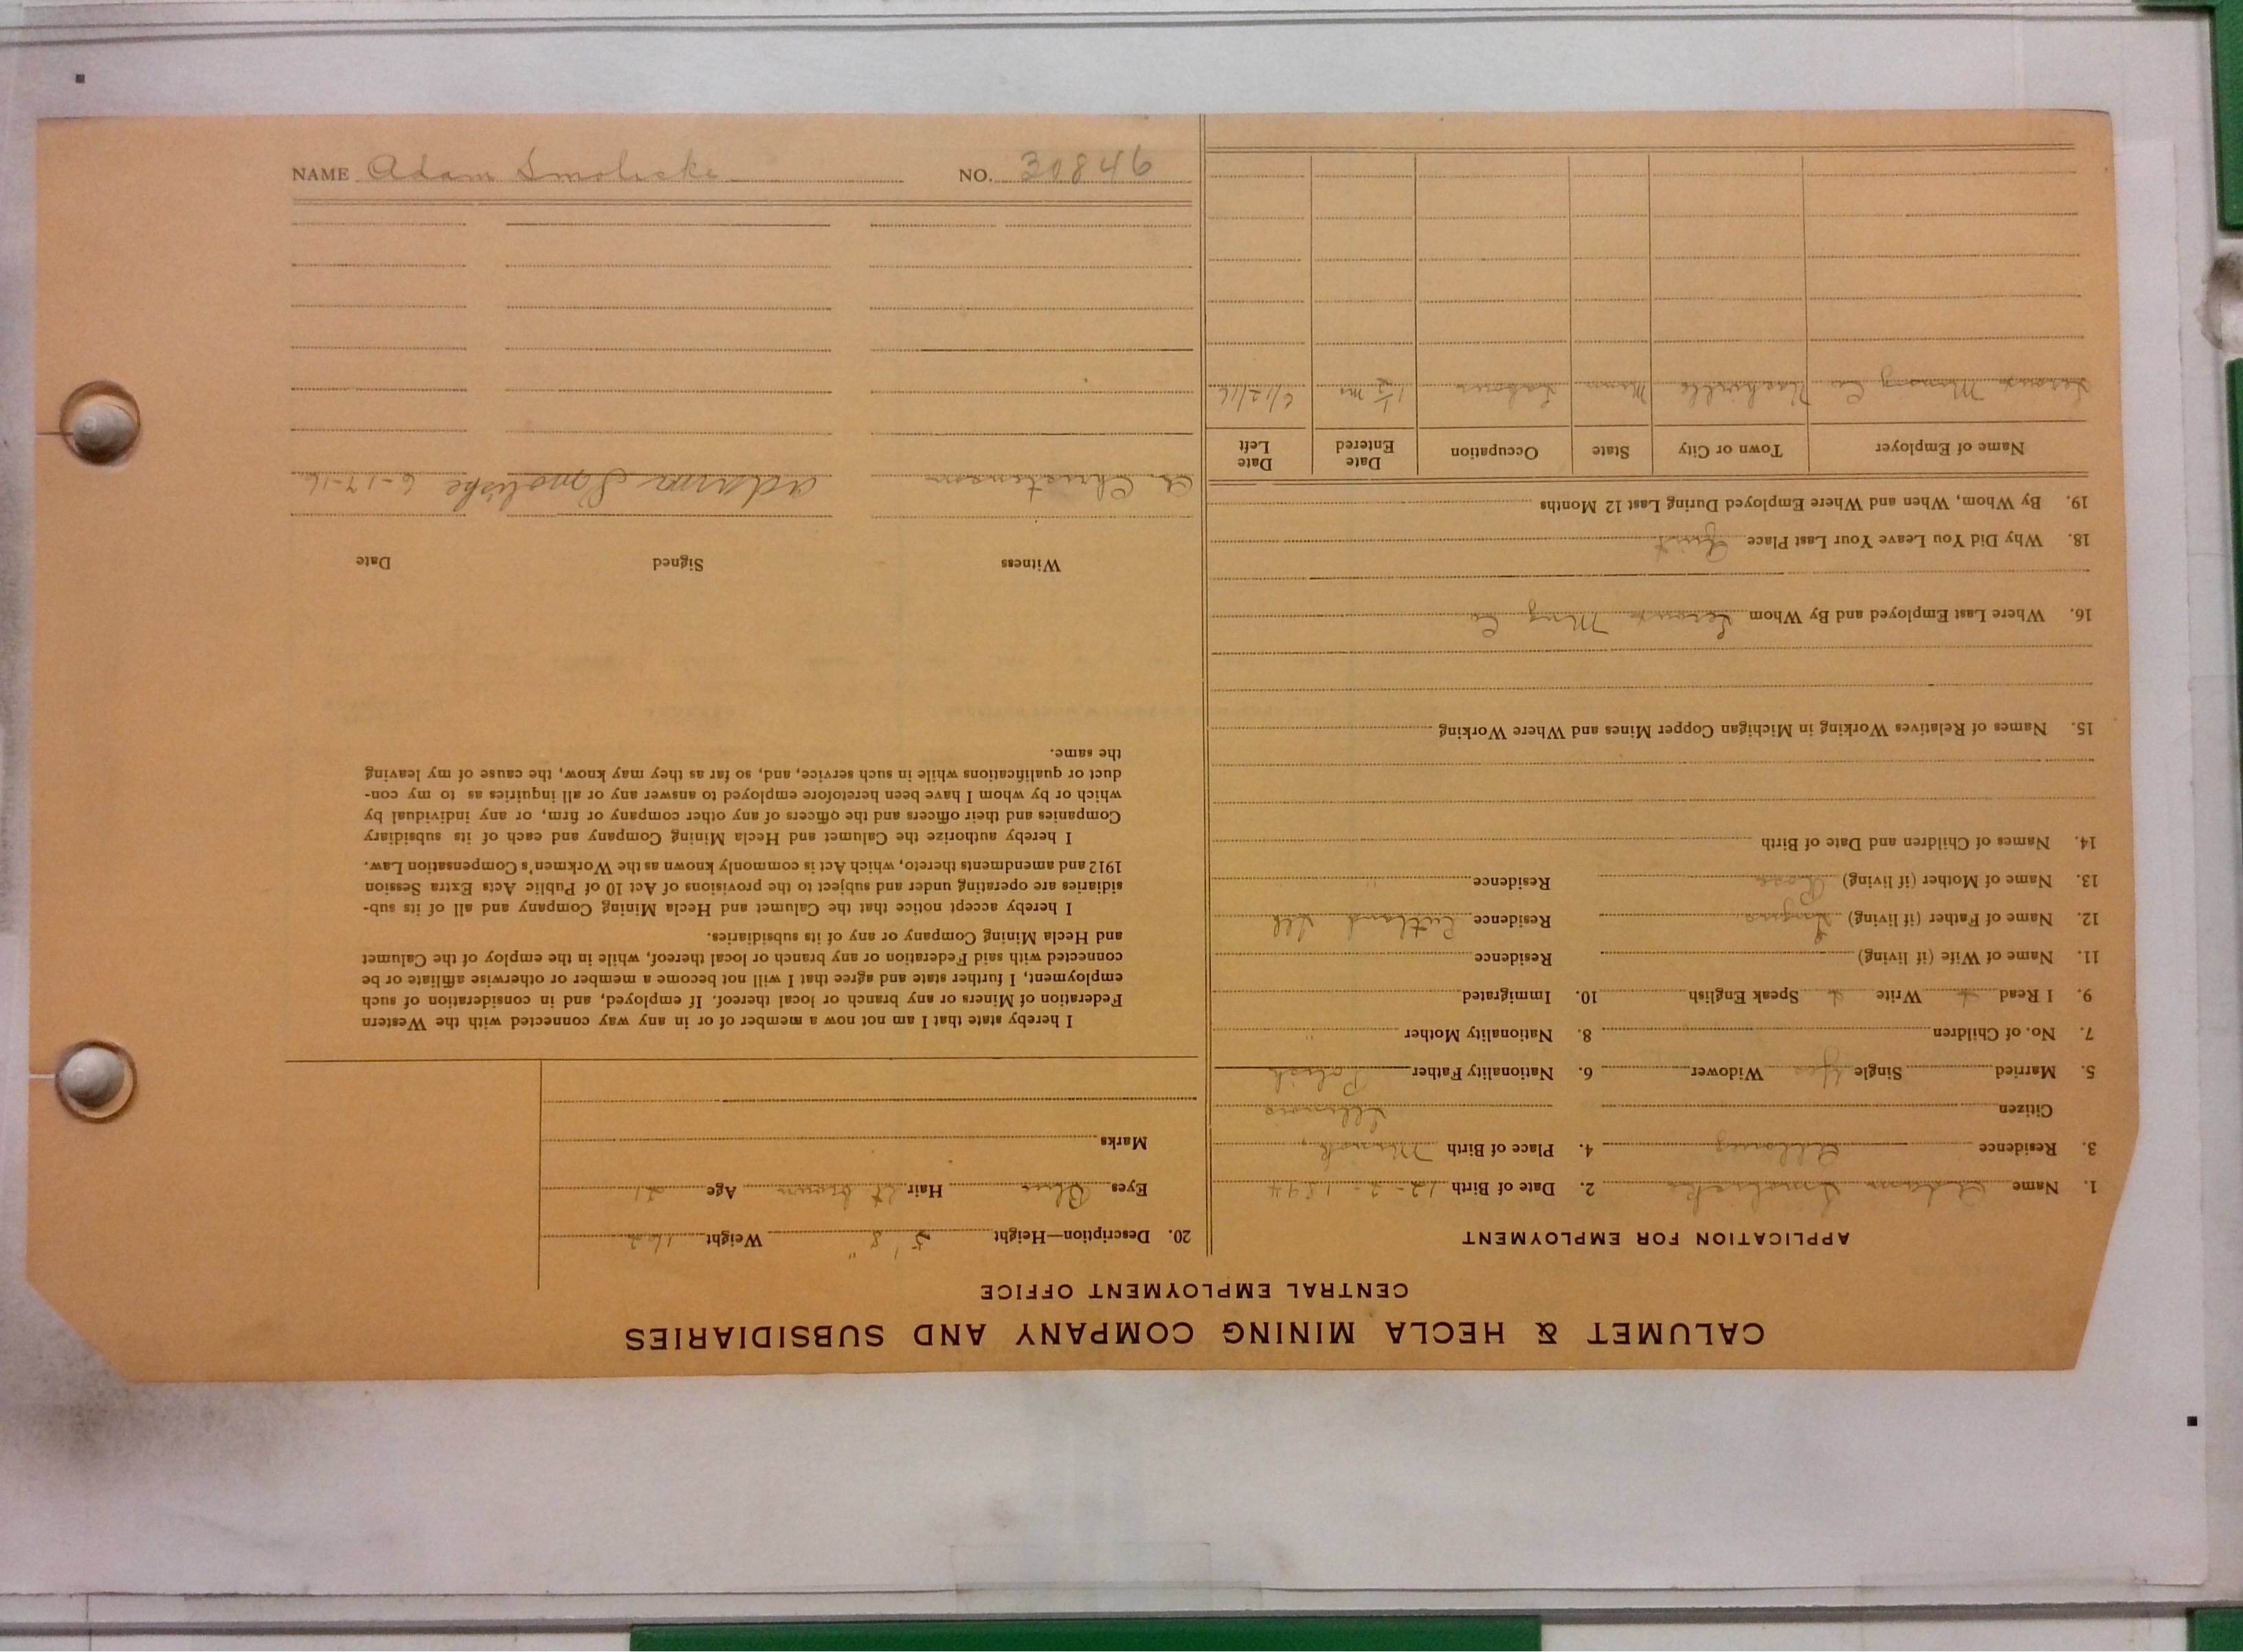 NAME Adam Smoliske NO. 30846
CALUMET & HECLA MINING COMPANY AND SUBSIDIARIES
CENTRAL EMPLOYMENT OFFICE
APPLICATION FOR EMPLOYMENT
1. Name Adam Smoliske 2. Date of Birth 12-2-1894
3. Residence 4. Place of Birth Minonk,
Citizen Illinois
5. Married Single Yes Widower 6. Nationality Father Polish
7. No. of Children 8. Nationality Mother "
9. I Read Write Speak English 10. Immigrated
11. Name of Wife (if living) Residence
12. Name of Father (if living) Residence Rutland Ill
13. Name of Mother (if living) Rose Residence "
14. Names of Children and Date of Birth
15. Names of Relatives Working in Michigan Copper Mines and Where Working
16. Where Last Employed and By Whom Mng Co
18. Why Did You Leave Your Last Place Quit
19. By Whom, When and Where Employed During Last 12 Months
Name of Employer Town or City State Occupation Date Entered Date Left
Mining Co Nashville Minn Laborer 1 1/2 mo 6/12/16
20. Description—Height 5' 8" Weight
Eyes Blue Hair Lt brown Age 21
Marks
I hereby state that I am not now a member of or in any way connected with the Western
Federation of Miners or any branch or local thereof. If employed, and in consideration of such
employment, I further state and agree that I will not become a member or otherwise affiliate or be
connected with said Federation or any branch or local thereof, while in the employ of the Calumet
and Hecla Mining Company or any of its subsidiaries.
I hereby accept notice that the Calumet and Hecla Mining Company and all of its sub-
sidiaries are operating under and subject to the provisions of Act 10 of Public Acts Extra Session
1912 and amendments thereto, which Act is commonly known as the Workmen's Compensation Law.
I hereby authorize the Calumet and Hecla Mining Company and each of its subsidiary
Companies and their officers and the officers of any other company or firm, or any individual by
which or by whom I have been heretofore employed to answer any or all inquiries as to my con-
duct or qualifications while in such service, and, so far as they may know, the cause of my leaving
the same.
Witness Signed Date
A. Christenson Adam Smoliske 6-17-16